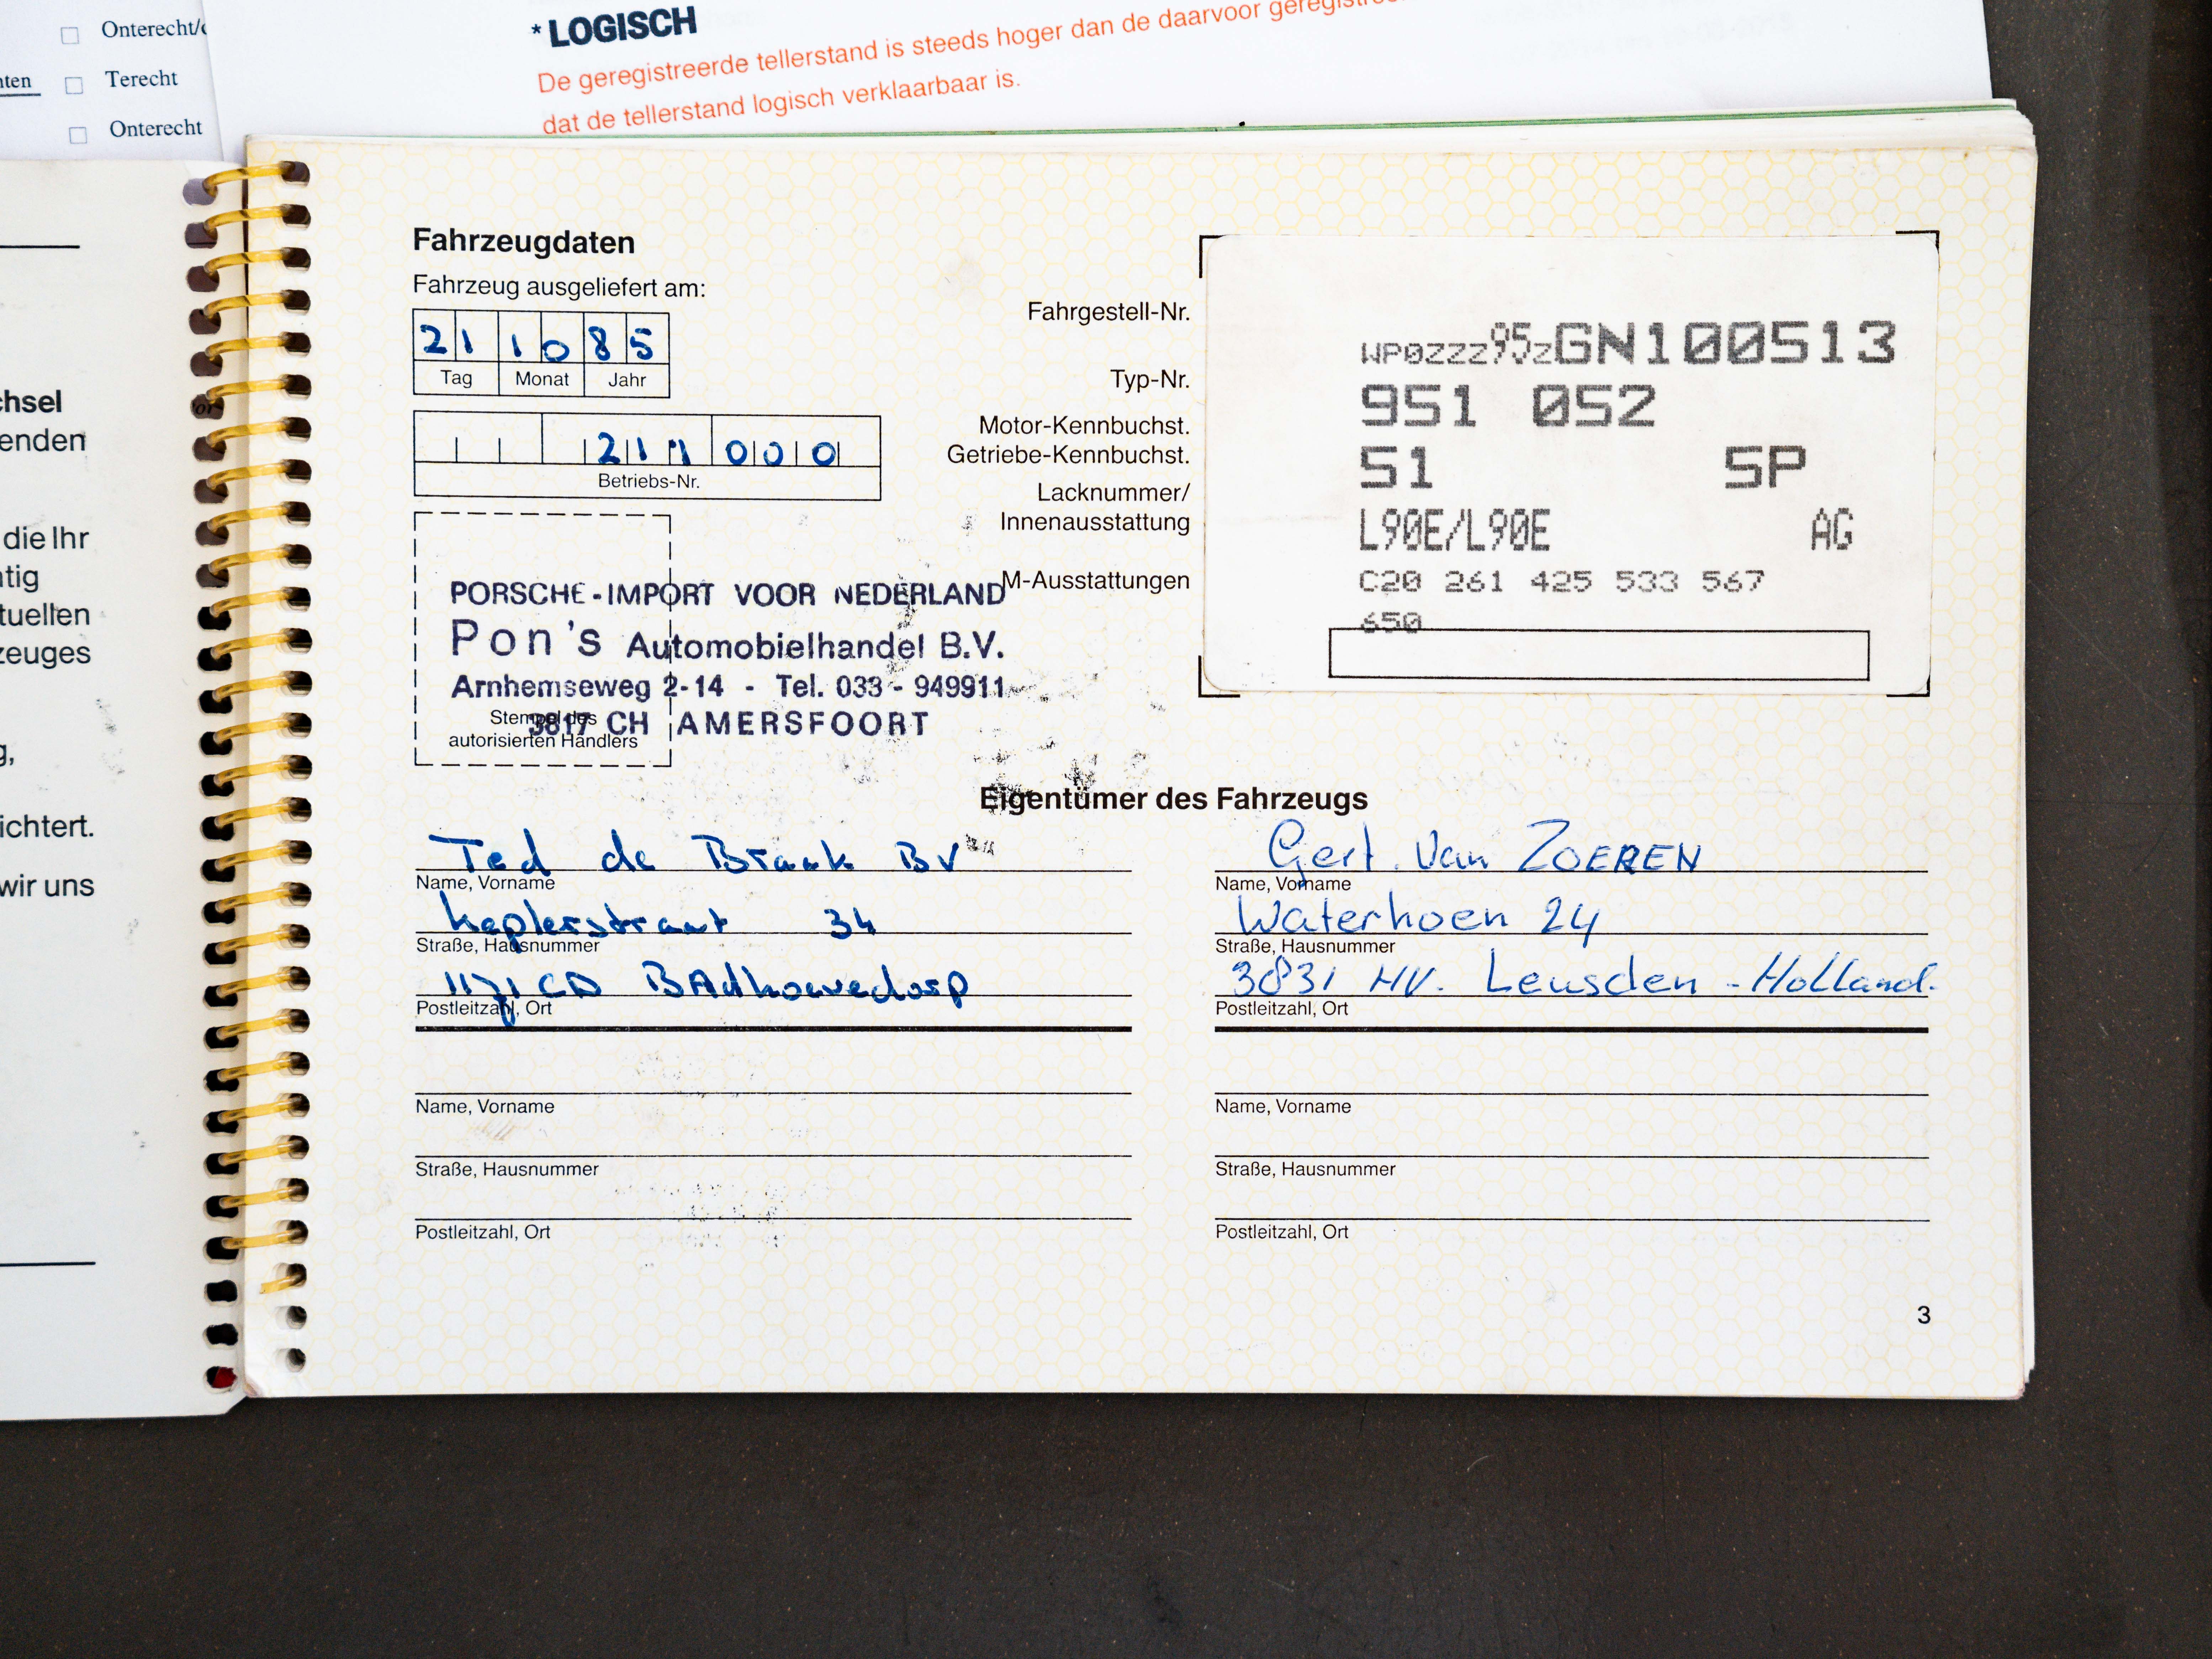 Onterecht/
nten Terecht
Onterecht
* LOGISCH
De geregistreerde tellerstand is steeds hoger dan de daarvoor
dat de tellerstand logisch verklaarbaar is.
chsel
enden
die Ihr
htig
tuellen
zeuges
g,
ichtert.
wir uns
Fahrzeugdaten
Fahrzeug ausgeliefert am:
21 10 85
Tag Monat Jahr
211 000
Betriebs-Nr.
PORSCHE-IMPORT VOOR NEDERLAND
Pon's Automobielhandel B.V.
Arnhemseweg 2-14 - Tel. 033 - 949911
3817 CH AMERSFOORT
Stempel des
autorisierten Händlers
Fahrgestell-Nr.
WP0ZZZ95ZGN100513
Typ-Nr.
951 052
Motor-Kennbuchst.
Getriebe-Kennbuchst.
51 5P
Lacknummer/
Innenausstattung
L90E/L90E AG
M-Ausstattungen
C20 261 425 533 567
650
Eigentümer des Fahrzeugs
Ted de Braak BV
Name, Vorname
Keplerstraat 34
Straße, Hausnummer
1171 CD BAdhoevedorp
Postleitzahl, Ort
Gert Van ZOEREN
Name, Vorname
Waterhoen 24
Straße, Hausnummer
3831 HV. Leusden - Holland.
Postleitzahl, Ort
Name, Vorname
Straße, Hausnummer
Postleitzahl, Ort
Name, Vorname
Straße, Hausnummer
Postleitzahl, Ort
3